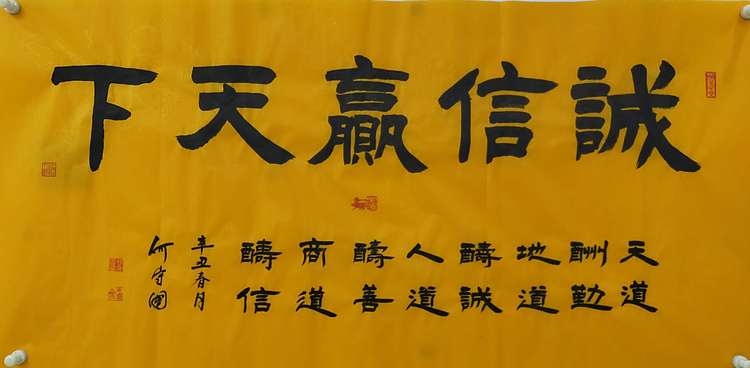 誠信贏天下
天道
酬勤
地道
酬誠
人道
酬善
商道
酬信
辛丑春月
何守國